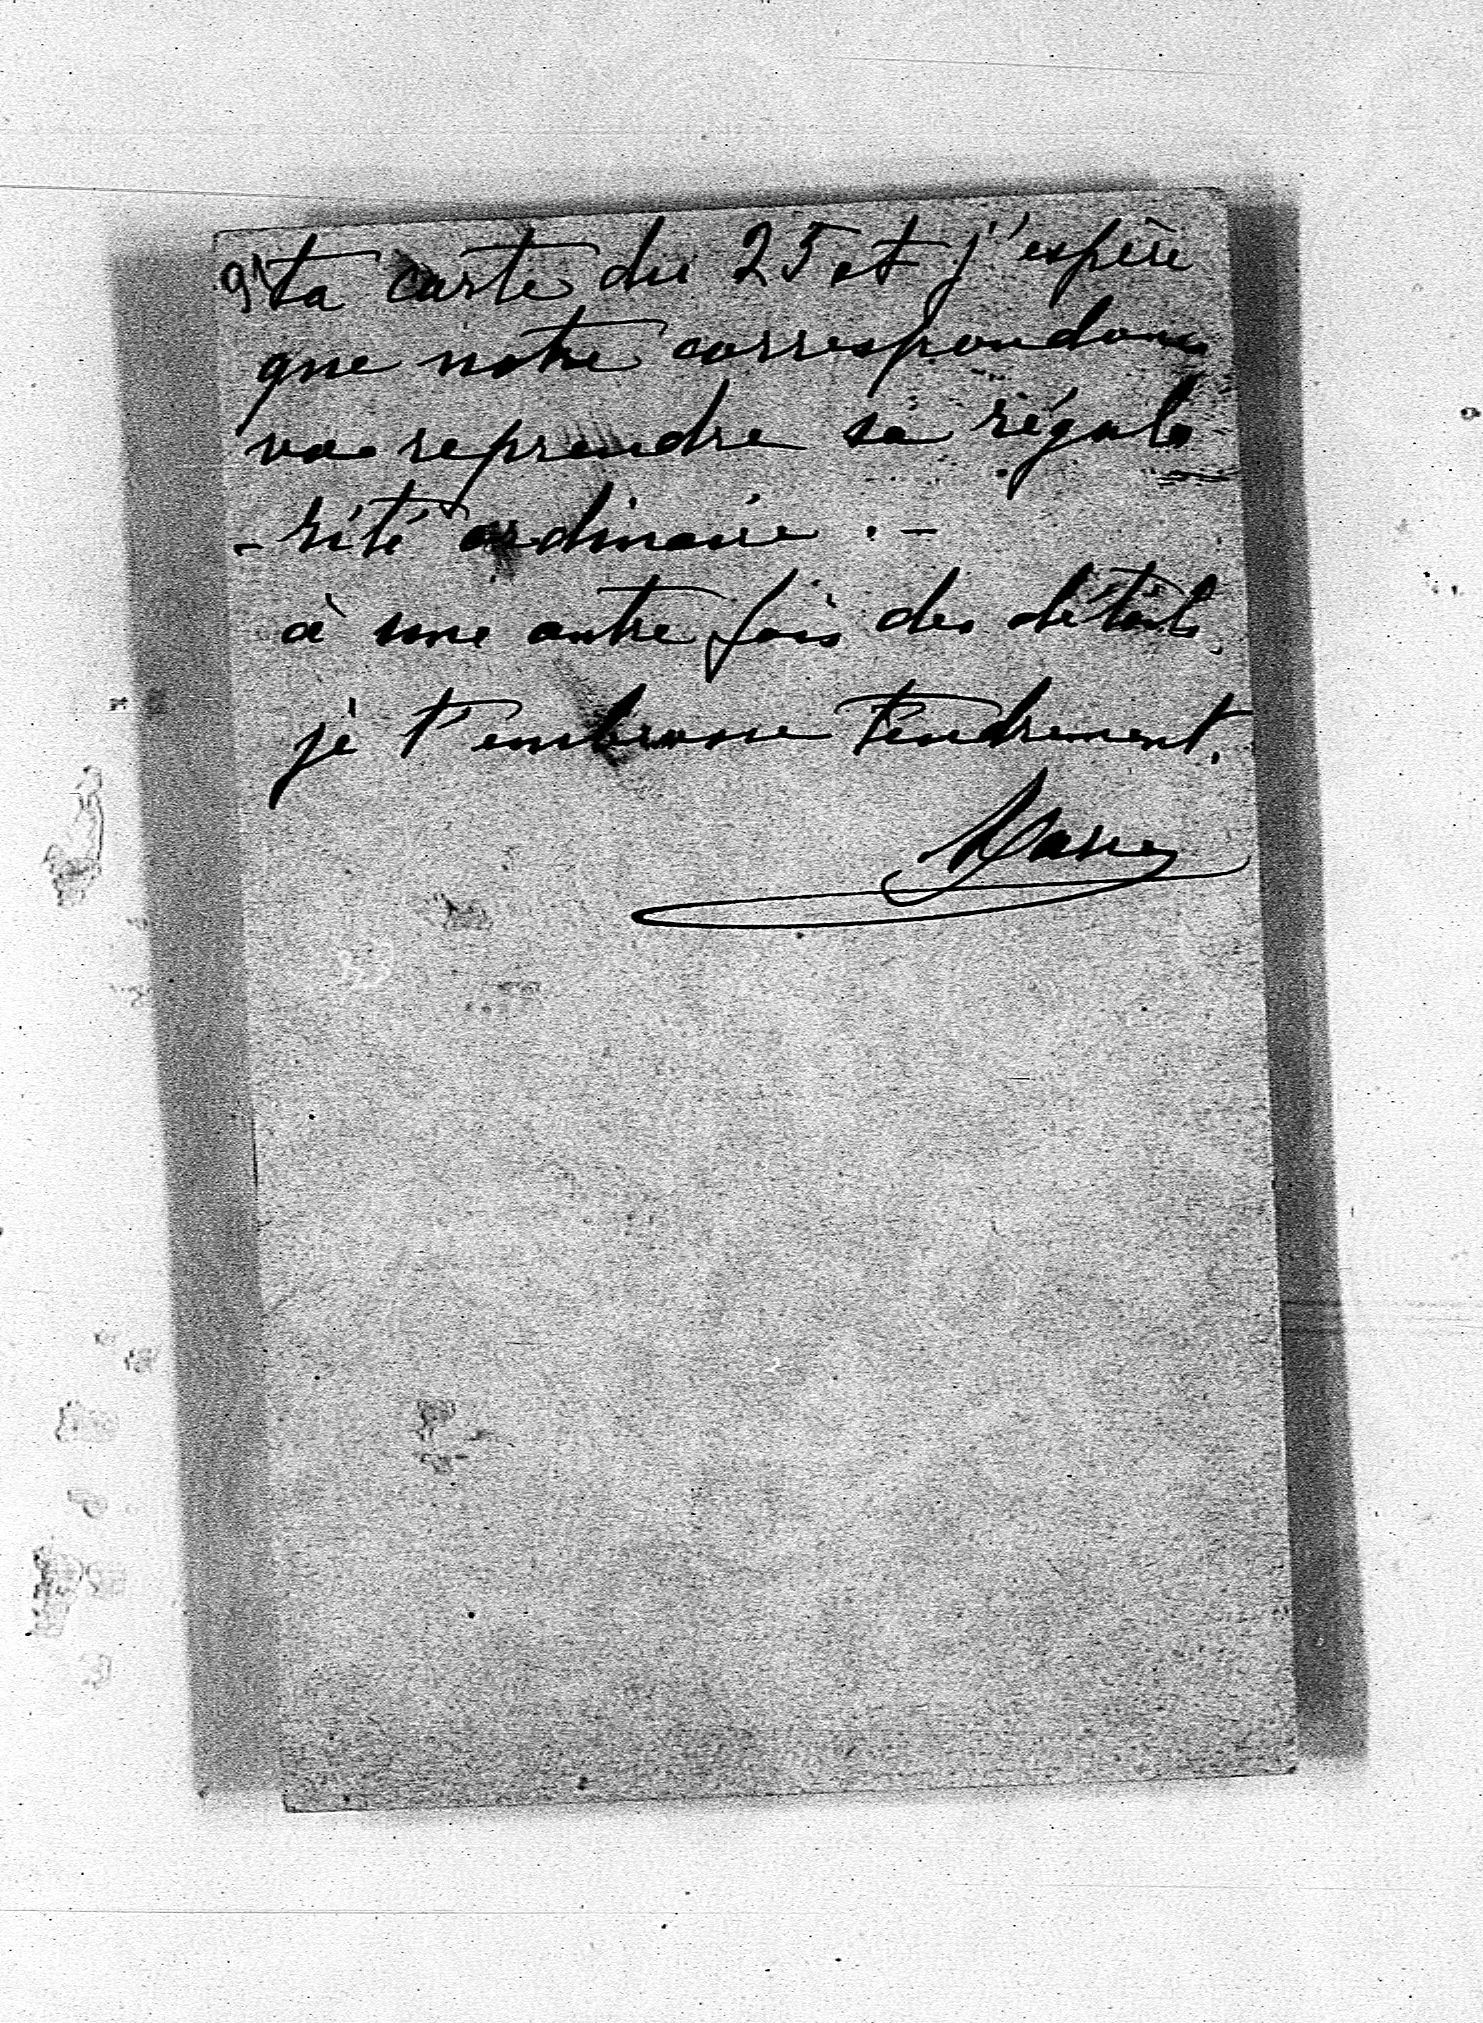 91 ta carte du 25 et j'espère
que notre correspondance
va reprendre sa régula
-rité ordinaire . -
à une autre fois des détails.
je t'embrasse tendrement.